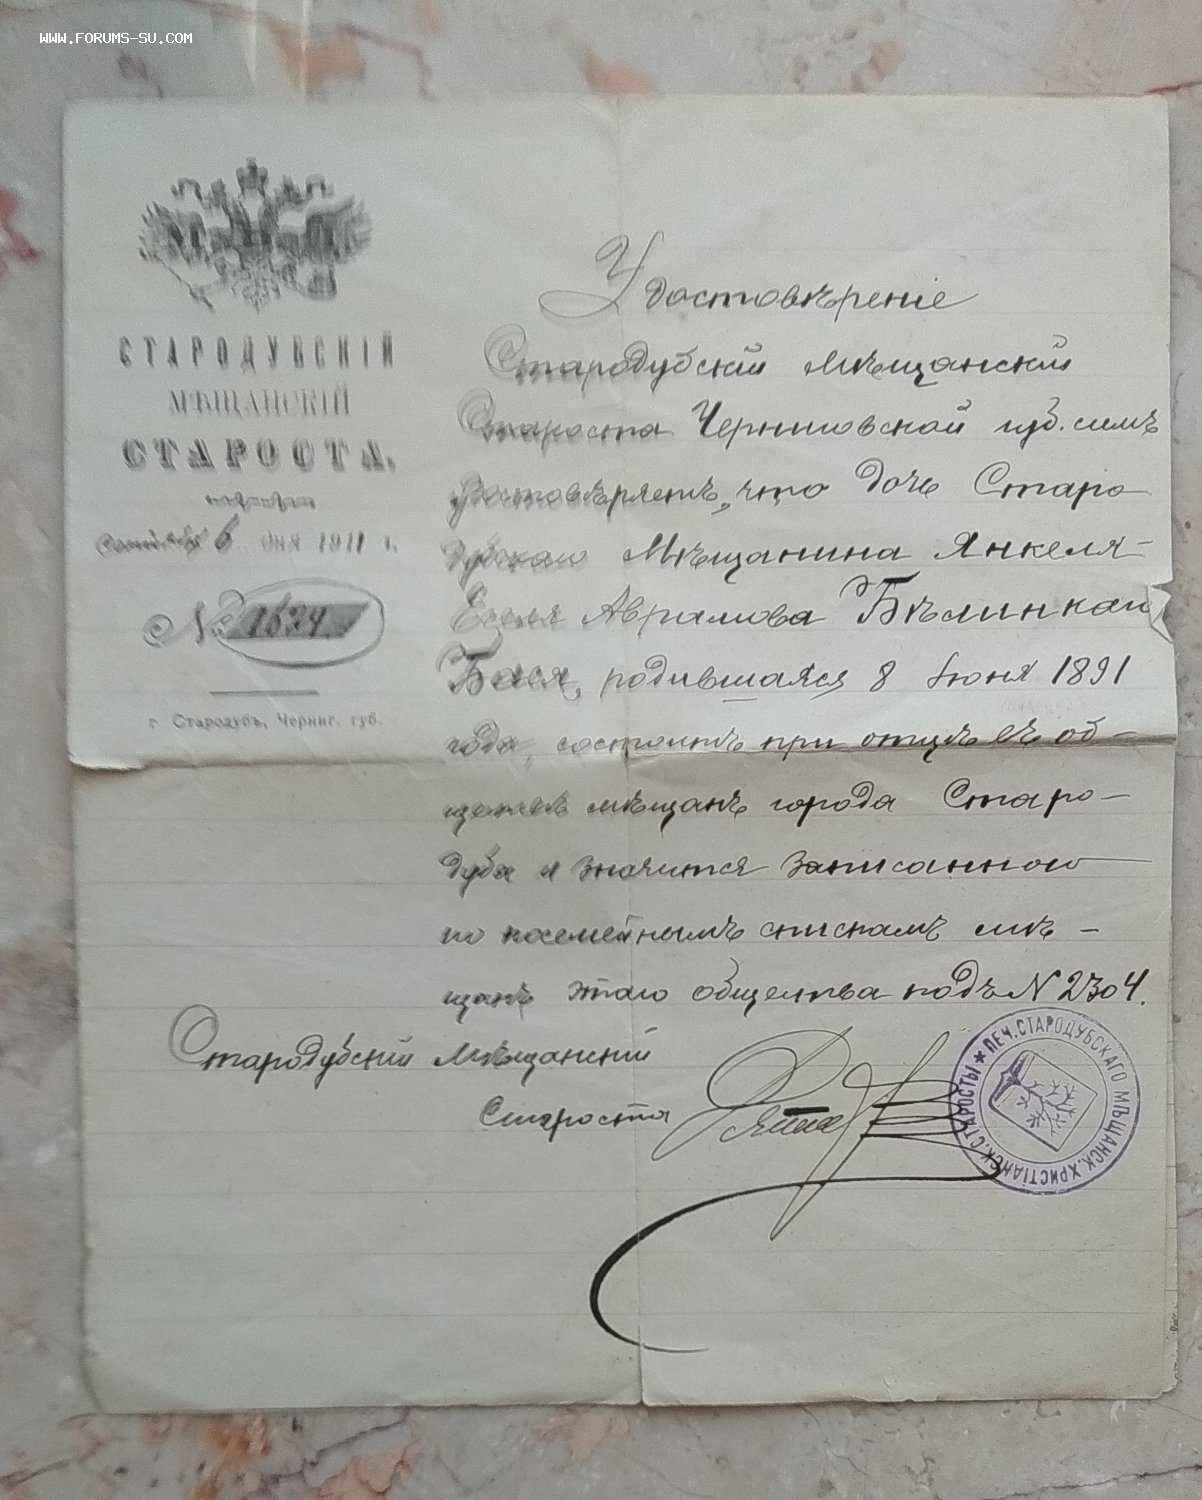 WWW.FORUMS-SU.COM
СТАРОДУБСКІЙ
МѢЩАНСКІЙ
СТАРОСТА.
6 дня 1911 г.
№ 1634
г. Стародубъ, Черниг. губ.
Удостовѣреніе
Стародубскій Мѣщанскій
Староста Черниговской губ. симъ
удостовѣряетъ, что дочь Старо-
дубскаго Мѣщанина Янкеля-
Еселя Аврамова Бѣлинкаи
Бася, родившаяся 8 Іюня 1891
года, состоитъ при отцѣ въ об-
ществѣ мѣщанъ города Старо-
дуба и значится записанною
по посемейнымъ спискамъ мѣ-
щанъ этого общества подъ N 2304.
Стародубскій Мѣщанскій
Староста
★ ПЕЧ. СТАРОДУБСКАГО МѢЩАНСК. ХРИСТІАНСК. СТАРОСТЫ